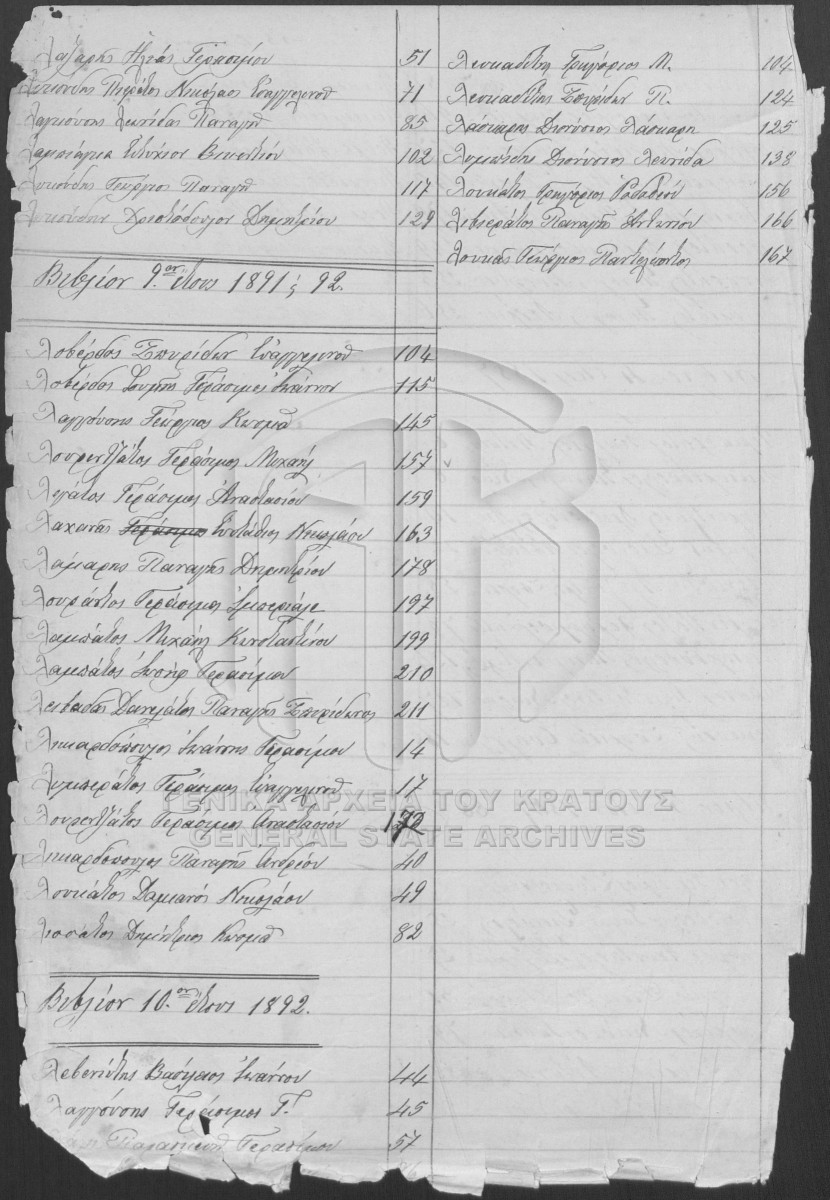 Λαζαρης Ηλίας Γερασίμου 51
Νικόλαος Ευαγγελινού 71
Παναγή 85
102
Γεώργιος Παναγή 117
Χριστόδουλος Δημητρίου 129
Βιβλίον 9.ον έτους 1891 ς 92.
Λοβέρδος Σπυρίδων Ευαγγελινού 104
Λοβέρδος Γεράσιμος Ιωάννου 115
Λαγγούσης Γεώργιος Κοσμά 145
Λουρεντζάτος Γεράσιμος Μιχαήλ 157
Λεγάτος Γεράσιμος Αναστασίου 159
Λαχανάς Γεράσιμος Ευστάθιος Νικολάου 163
Λάμαρης Παναγής Δημητρίου 178
Λουράντος Γεράσιμος 197
Λαμπάτος Μιχαήλ Κωνσταντίνου 199
Λαμπάτος Ιωσήφ Γερασίμου 210
Λειβαδάς Δανελάτος Παναγής Σπυρίδωνος 211
Λικαρδόπουλος Ιωάννης Γερασίμου 14
Λυμπεράτος Γεράσιμος Ευαγγελινού 17
Λουρεντζάτος Γεράσιμος Αναστασίου 172
Λικαρδόπουλος Παναγής Ανδρέου 40
Λουκάτος Δαμιανός Νικολάου 49
Λισσάτος Δημήτριος Κοσμά 82
Βιβλίον 10.ον έτους 1892.
Λεβενιώτης Βασίλειος Ιωάννου 44
Λαγγούσης Γεράσιμος Γ. 45
Γερασίμου 57
Λευκαδίτης Γρηγόριος Μ. 104
Λευκαδίτης Σπυρίδων Π. 124
Λάσκαρης Διονύσιος Λάσκαρη 125
Διονύσιος Λεωνίδα 138
Λουκάτος Γρηγόριος 156
Λιβιεράτος Παναγής Αντωνίου 166
Λουκάς Γεώργιος 167
ΓΕΝΙΚΑ ΑΡΧΕΙΑ ΤΟΥ ΚΡΑΤΟΥΣ
GENERAL STATE ARCHIVES